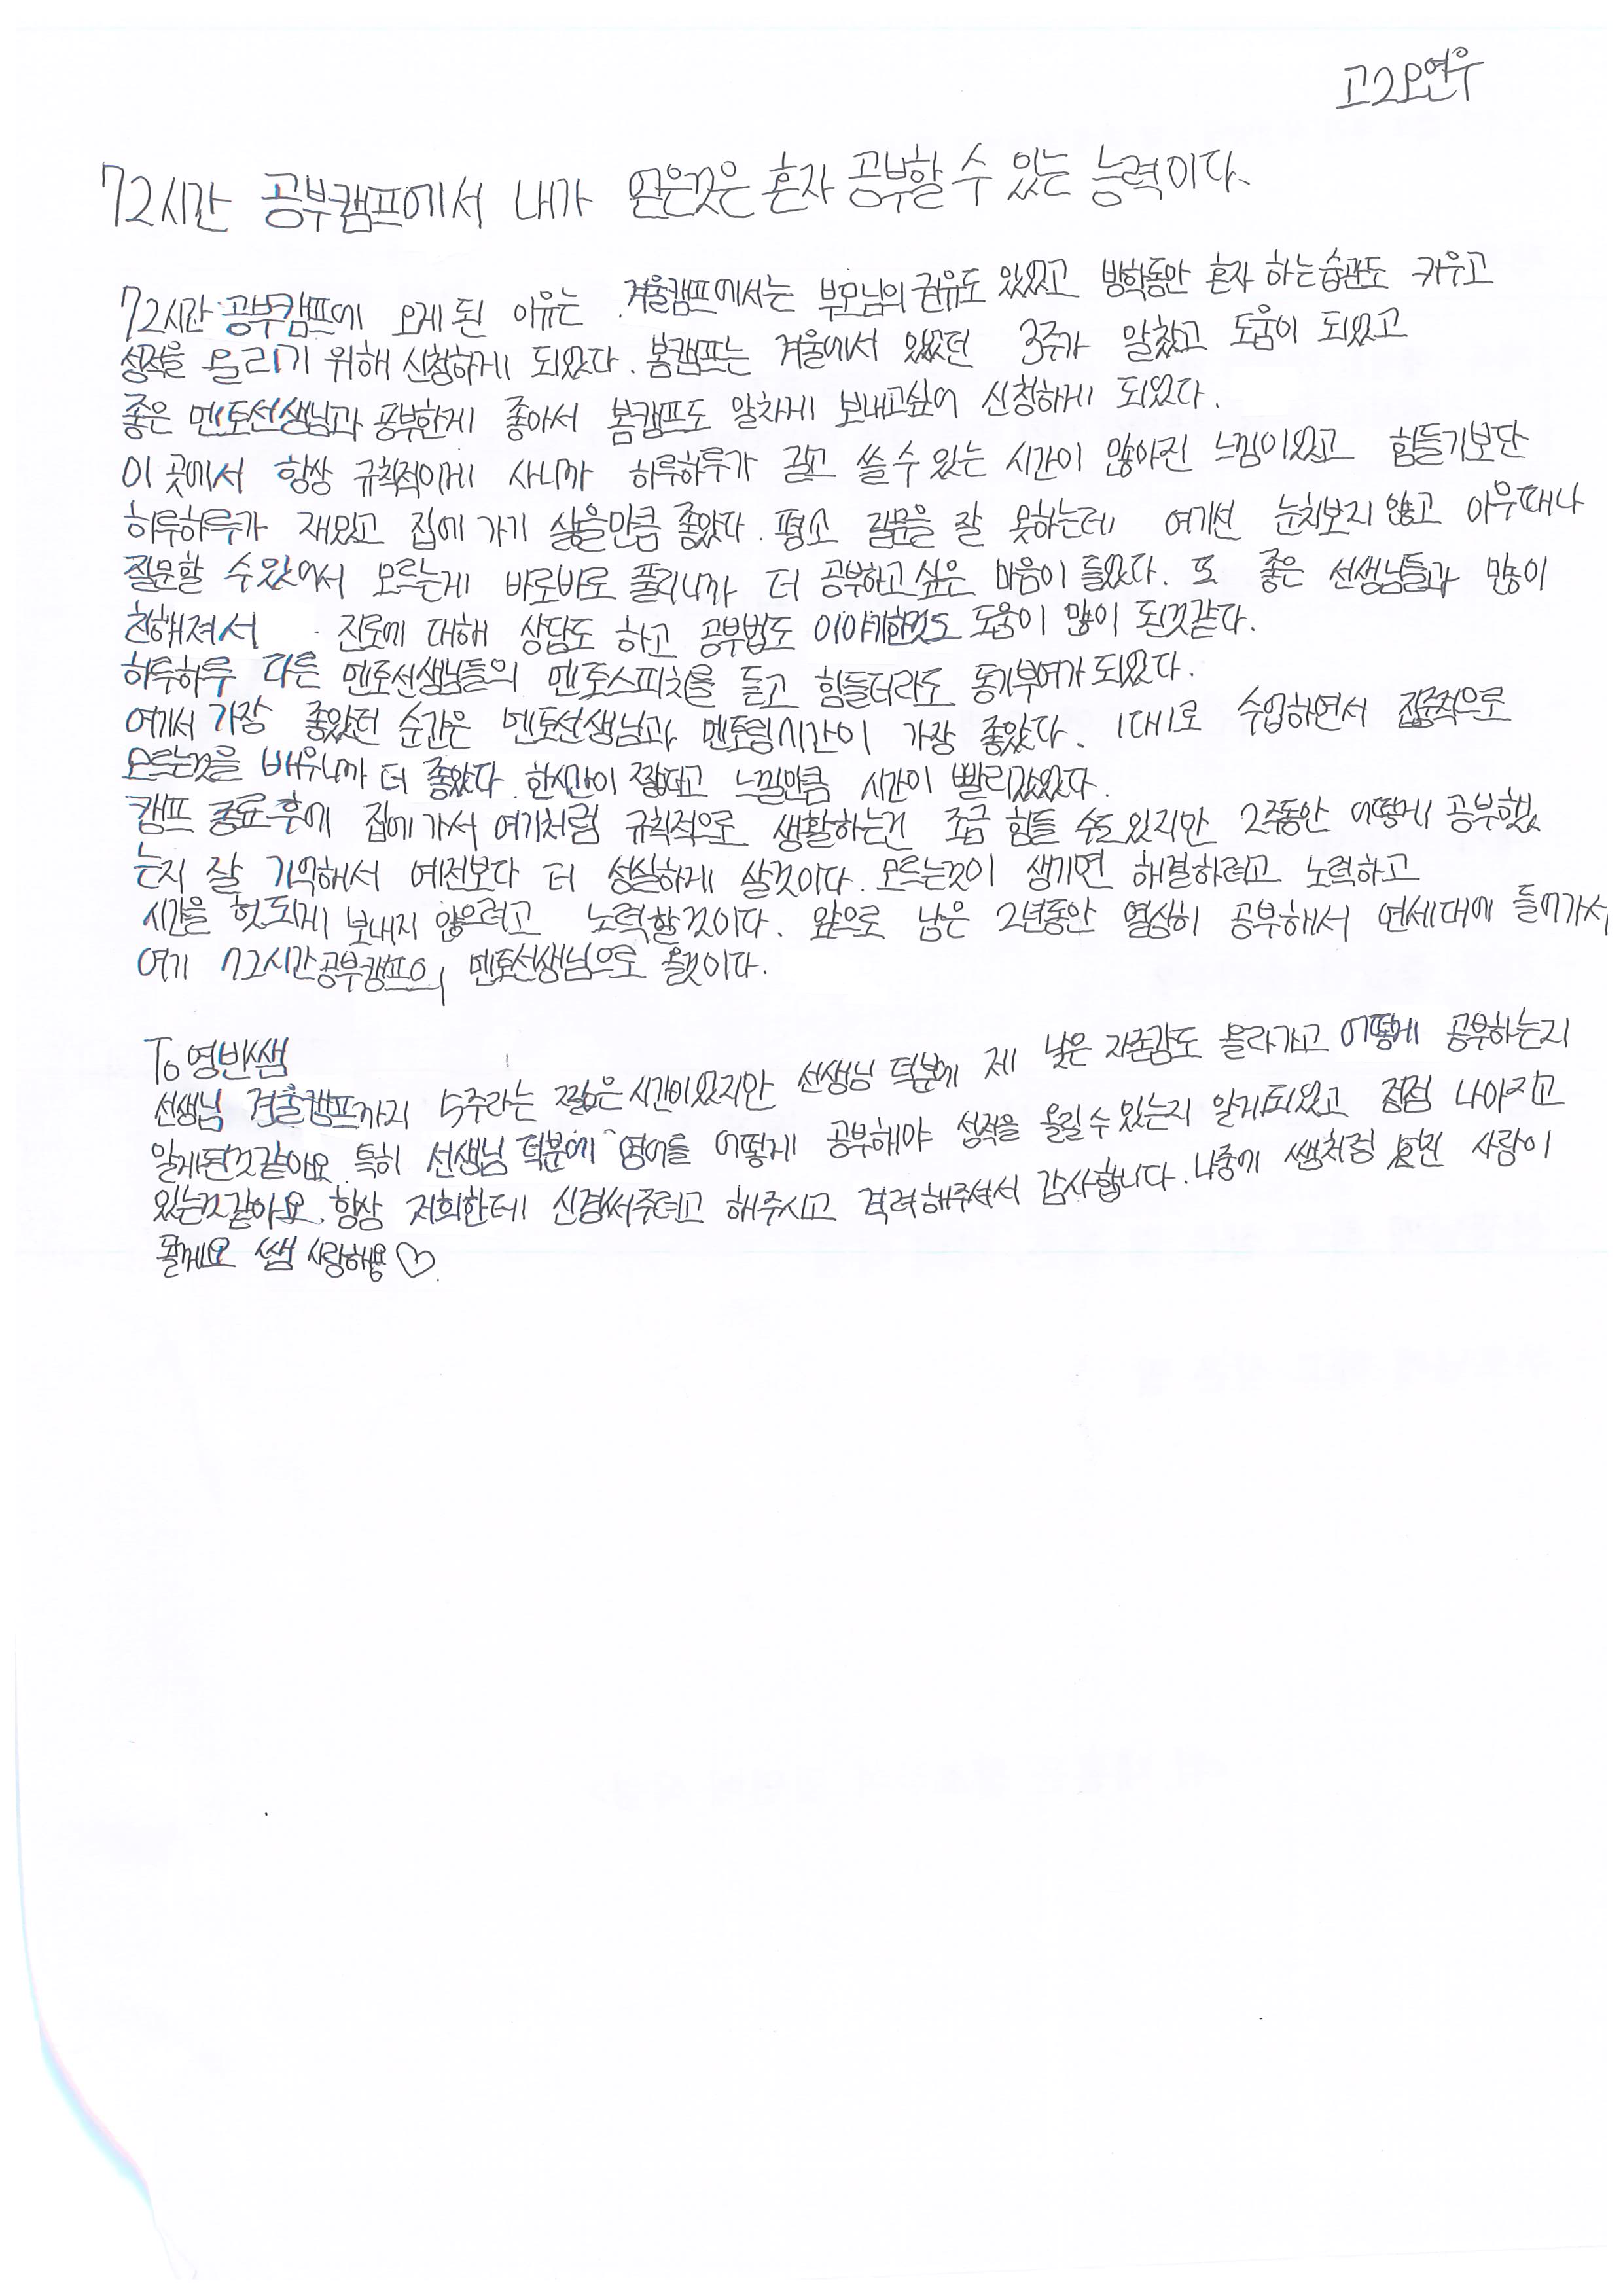 고2 오연우
72시간 공부캠프에서 내가 얻은것은 혼자 공부할 수 있는 능력이다.
72시간 공부캠프에 오게 된 이유는 겨울캠프에서는 부모님의 권유도 있었고 방학동안 혼자 하는습관도 키우고
성적을 올리기 위해 신청하게 되었다. 봄캠프는 겨울에서 있었던 3주가 알찼고 도움이 되었고
좋은 멘토선생님과 공부한게 좋아서 봄캠프도 알차게 보내고싶어 신청하게 되었다.
이 곳에서 항상 규칙적이게 사니까 하루하루가 길고 쓸 수 있는 시간이 많아진 느낌이었고 힘들기보단
하루하루가 재밌고 집에 가기 싫을만큼 좋았다. 평소 질문을 잘 못하는데 여기선 눈치보지 않고 아무때나
질문할 수 있어서 모르는게 바로바로 풀리니까 더 공부하고 싶은 마음이 들었다. 또 좋은 선생님들과 많이
친해져서 진로에 대해 상담도 하고 공부법도 이야기한것도 도움이 많이 된것같다.
하루하루 다른 멘토선생님들의 멘토스피치를 듣고 힘들더라도 동기부여가 되었다.
여기서 가장 좋았던 순간은 멘토선생님과 멘토링시간이 가장 좋았다. 1대1로 수업하면서 집중적으로
모르는것을 배우니까 더 좋았다. 한시간이 짧다고 느낄만큼 시간이 빨리갔었다.
캠프 종료 후에 집에 가서 여기처럼 규칙적으로 생활하는건 조금 힘들 수도 있지만 2주동안 어떻게 공부했
는지 잘 기억해서 예전보다 더 성실하게 살것이다. 모르는것이 생기면 해결하려고 노력하고
시간을 헛되게 보내지 않으려고 노력할 것이다. 앞으로 남은 2년동안 열심히 공부해서 연세대에 들어가서
여기 72시간공부캠프의 멘토선생님으로 올것이다.
To 영반쌤
선생님 겨울캠프까지 5주라는 짧은 시간이었지만 선생님 덕분에 제 낮은 자존감도 올라가고 어떻게 공부하는지
알게된것같아요. 특히 선생님 덕분에 영어를 어떻게 공부해야 성적을 올릴 수 있는지 알게되었고 점점 나아지고
있는것같아요. 항상 저희한테 신경써주려고 해주시고 격려해주셔서 감사합니다. 나중에 쌤처럼 멋진 사람이
될게요 쌤 사랑해용♡.